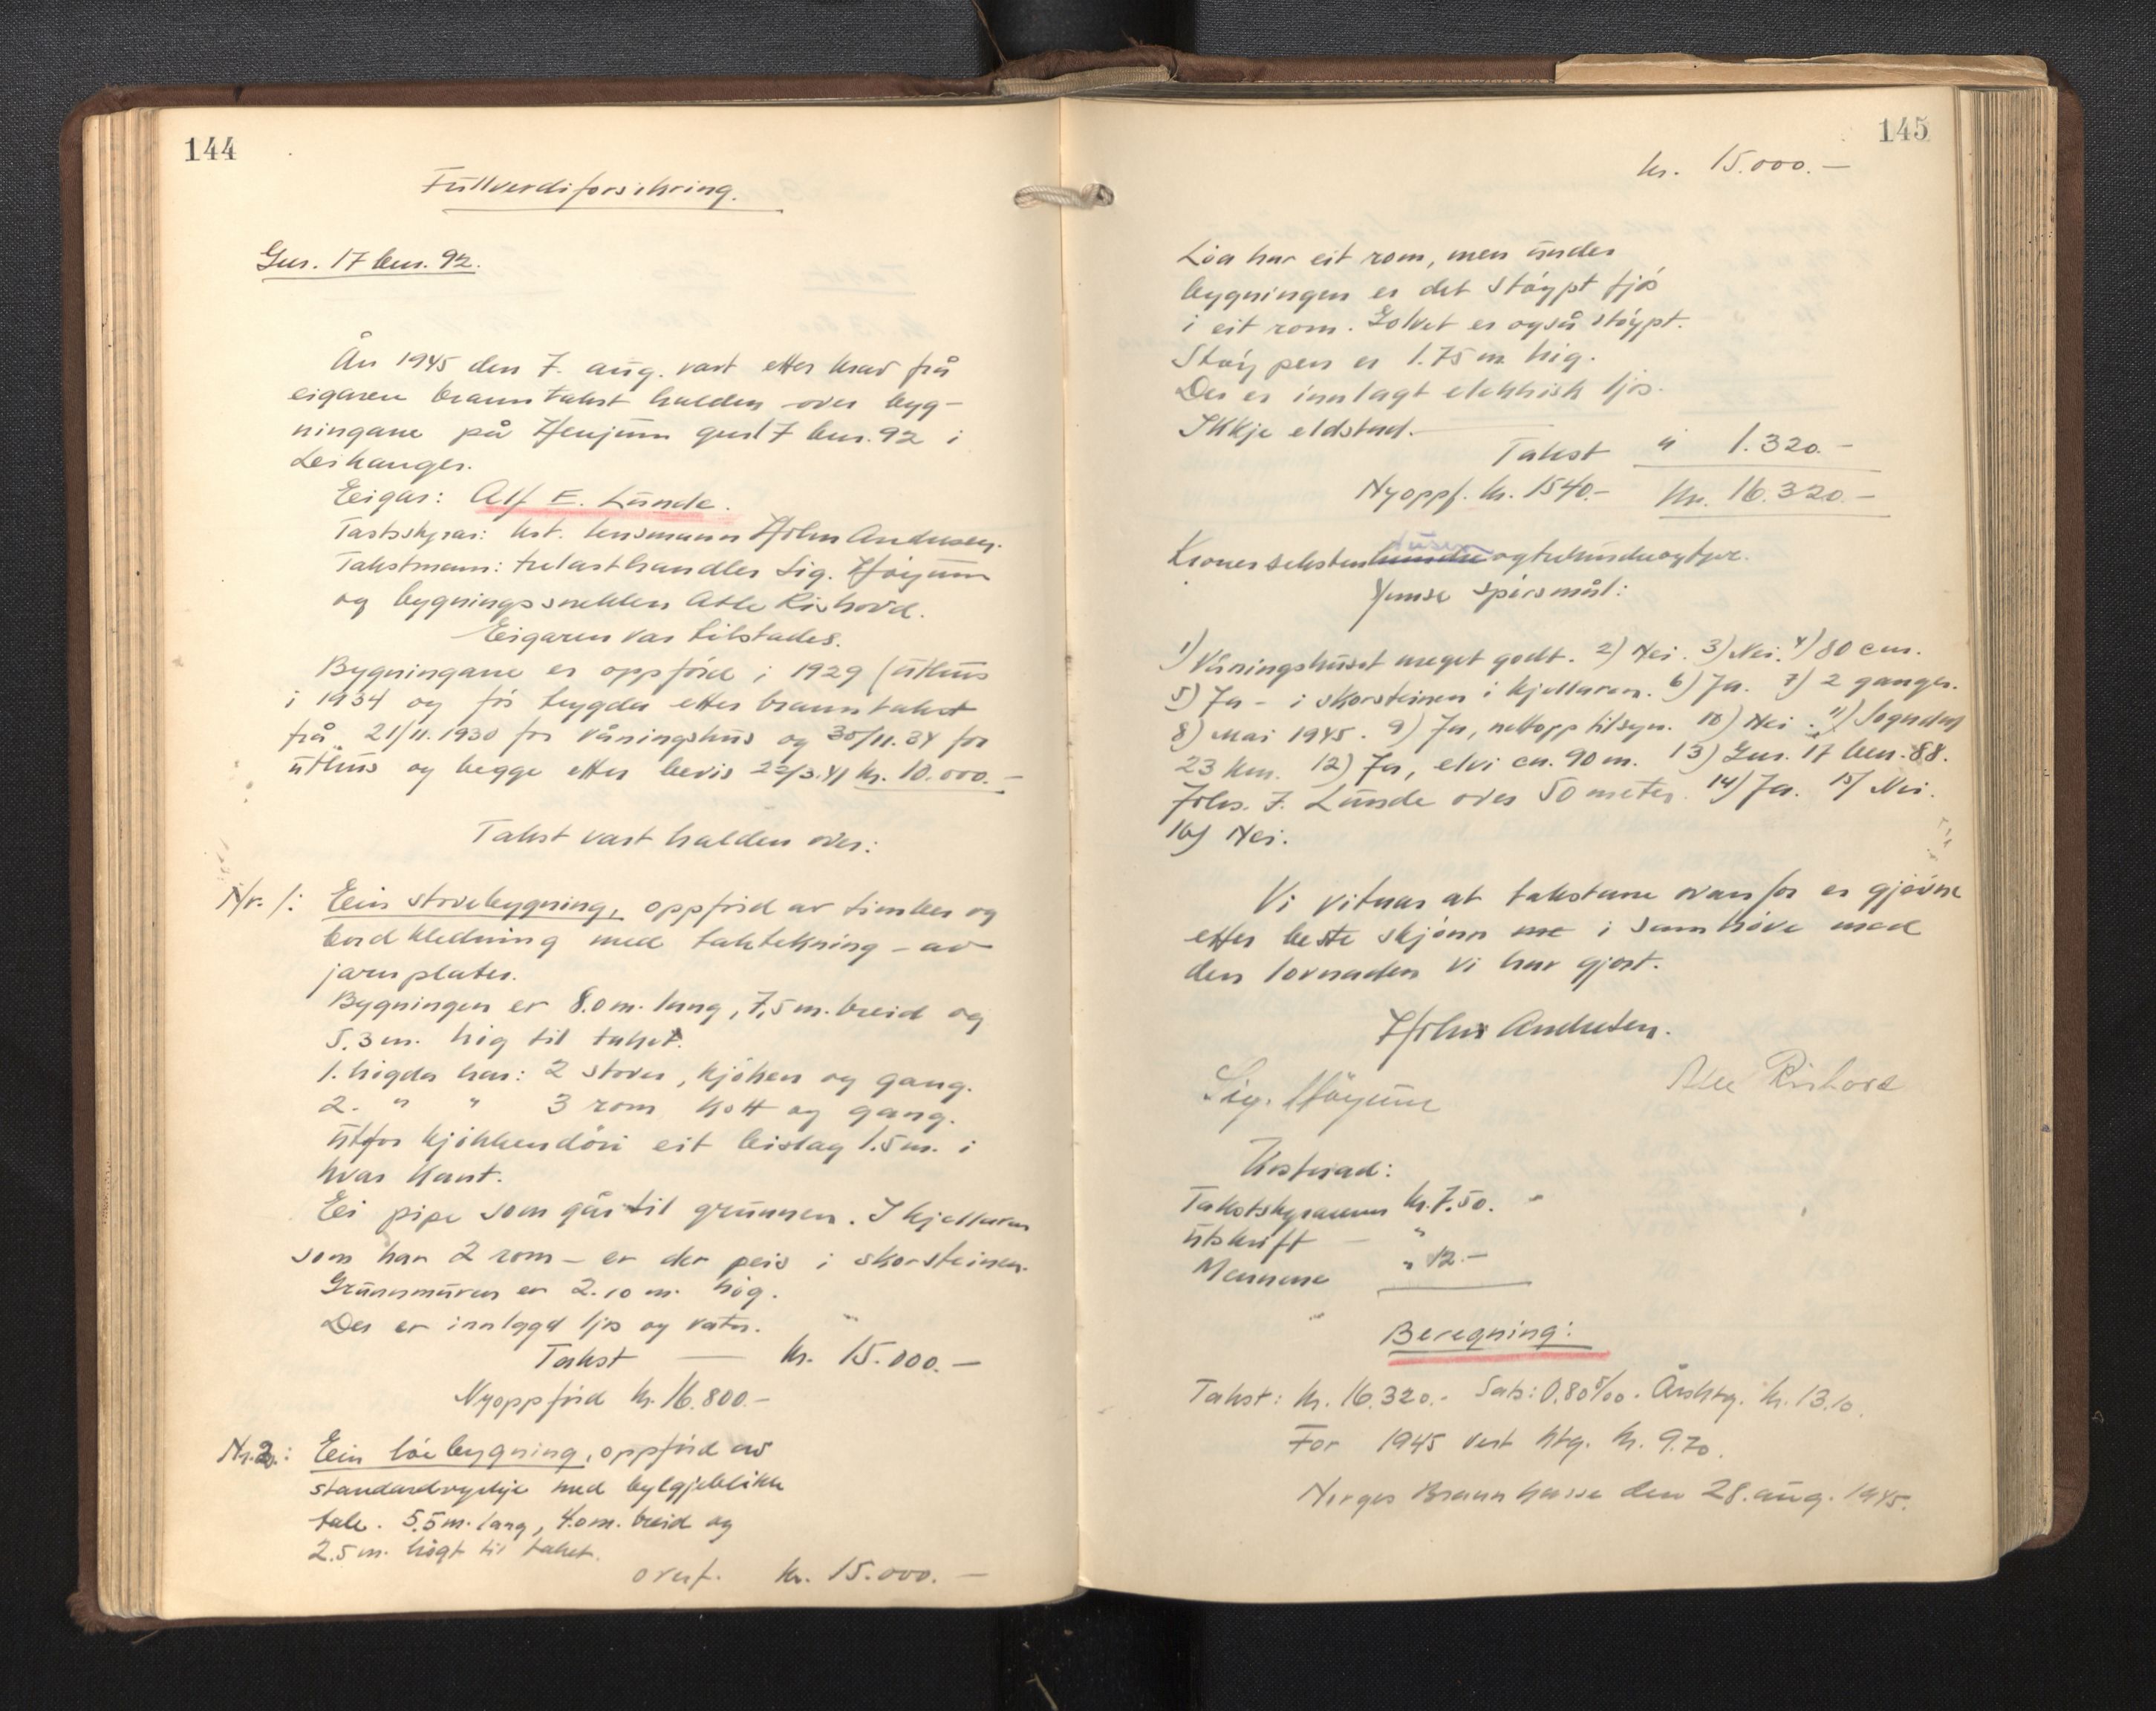 144
Fullverdiforsikring.
Gnr. 17 bnr. 92.
År 1945 den 7. aug. vart etter krav frå
eigaren branntakst halden over byg-
ningane på Henjum gnr 17 bnr. 92 i
Leikanger.
Eigar: Alf E. Lunde.
Takstskyrar: kst. lensmann Holm Andersen.
Takstmenn: trelasthandler Sig. Høyum
og bygningssnekker Atle Rishovd.
Eigaren var tilstades.
Bygningane er oppførd i 1929 (uthus
i 1934 og før trygda etter branntakst
frå 21/11.1930 for våningshus og 30/11.34 for
uthus og begge etter bevis 22/3.41 kr. 10.000.—
Takst vart halden over:
Nr. 1: Ein stovebygning, oppførd av timber og
bordkledning med taktekning - av
jarnplater.
Bygningen er 8.0 m. lang, 7,5 m. breid og
5.3 m. høg til taket.
1. høgda har: 2 stover, kjøken og gang.
2. " " 3 rom kott og gang.
Utfor kjøkkendøri eit bislag 1.5 m. i
hvar kant.
Ei pipe som går til grunnen. I kjellaren
som har 2 rom - er der peis i skorsteinen.
Grunnmuren er 2.10 m. høg.
Der er innlagd ljos og vatn.
Takst — kr. 15.000.—
Nyoppførd kr. 16.800.-
Nr. 2.: Ein løebygning, oppførd av
standardrøyslje med bylgjeblikk
tak. 5.5 m. lang, 4.0 m. breid og
2.5 m. høgt til taket.
overf. kr. 15.000.—
145
kr. 15.000.—
Løa har eit rom, men under
bygningen er det støypt fjøs
i eit rom. Golvet er også støypt.
Støypen er 1.75 m. høg.
Der er innlagt elektrisk ljos.
Ikkje eldstad.
Takst " 1.320.—
Nyoppf. kr. 1540.- Kr. 16.320.—
tusen
Kroner seksten hundre og trehundreogtjue.
Ymse spørsmål:
1) Våningshuset meget godt. 2) Nei. 3) Nei. 4) 80 cm.
5) Ja - i skorsteinen i kjellaren. 6) Ja. 7) 2 ganger.
8) Mai 1945. 9) Ja, nettopp tilsyn. 10) Nei. 11) Sogndal
23 km. 12) Ja, elvi ca. 90 m. 13) Gnr. 17 bnr. 88.
Johs. J. Lunde over 50 meter. 14) Ja. 15) Nei.
16) Nei.
Vi vitnar at takstane ovanfor er gjevne
etter beste skjønn me i samhøve med
den lovnaden vi har gjort.
Holm Andersen.
Sig. Høyum Atle Rishovd
Kostnad:
Takstskyraren kr. 7.50.
Utskrift — "
Mennene " 12.—
Beregning:
Takst: kr. 16.320.- Sats: 0.80 ‰. Årsktg. kr. 13.10.
For 1945 vert ktg. kr. 9.70.
Norges Brannkasse den 28. aug. 1945.